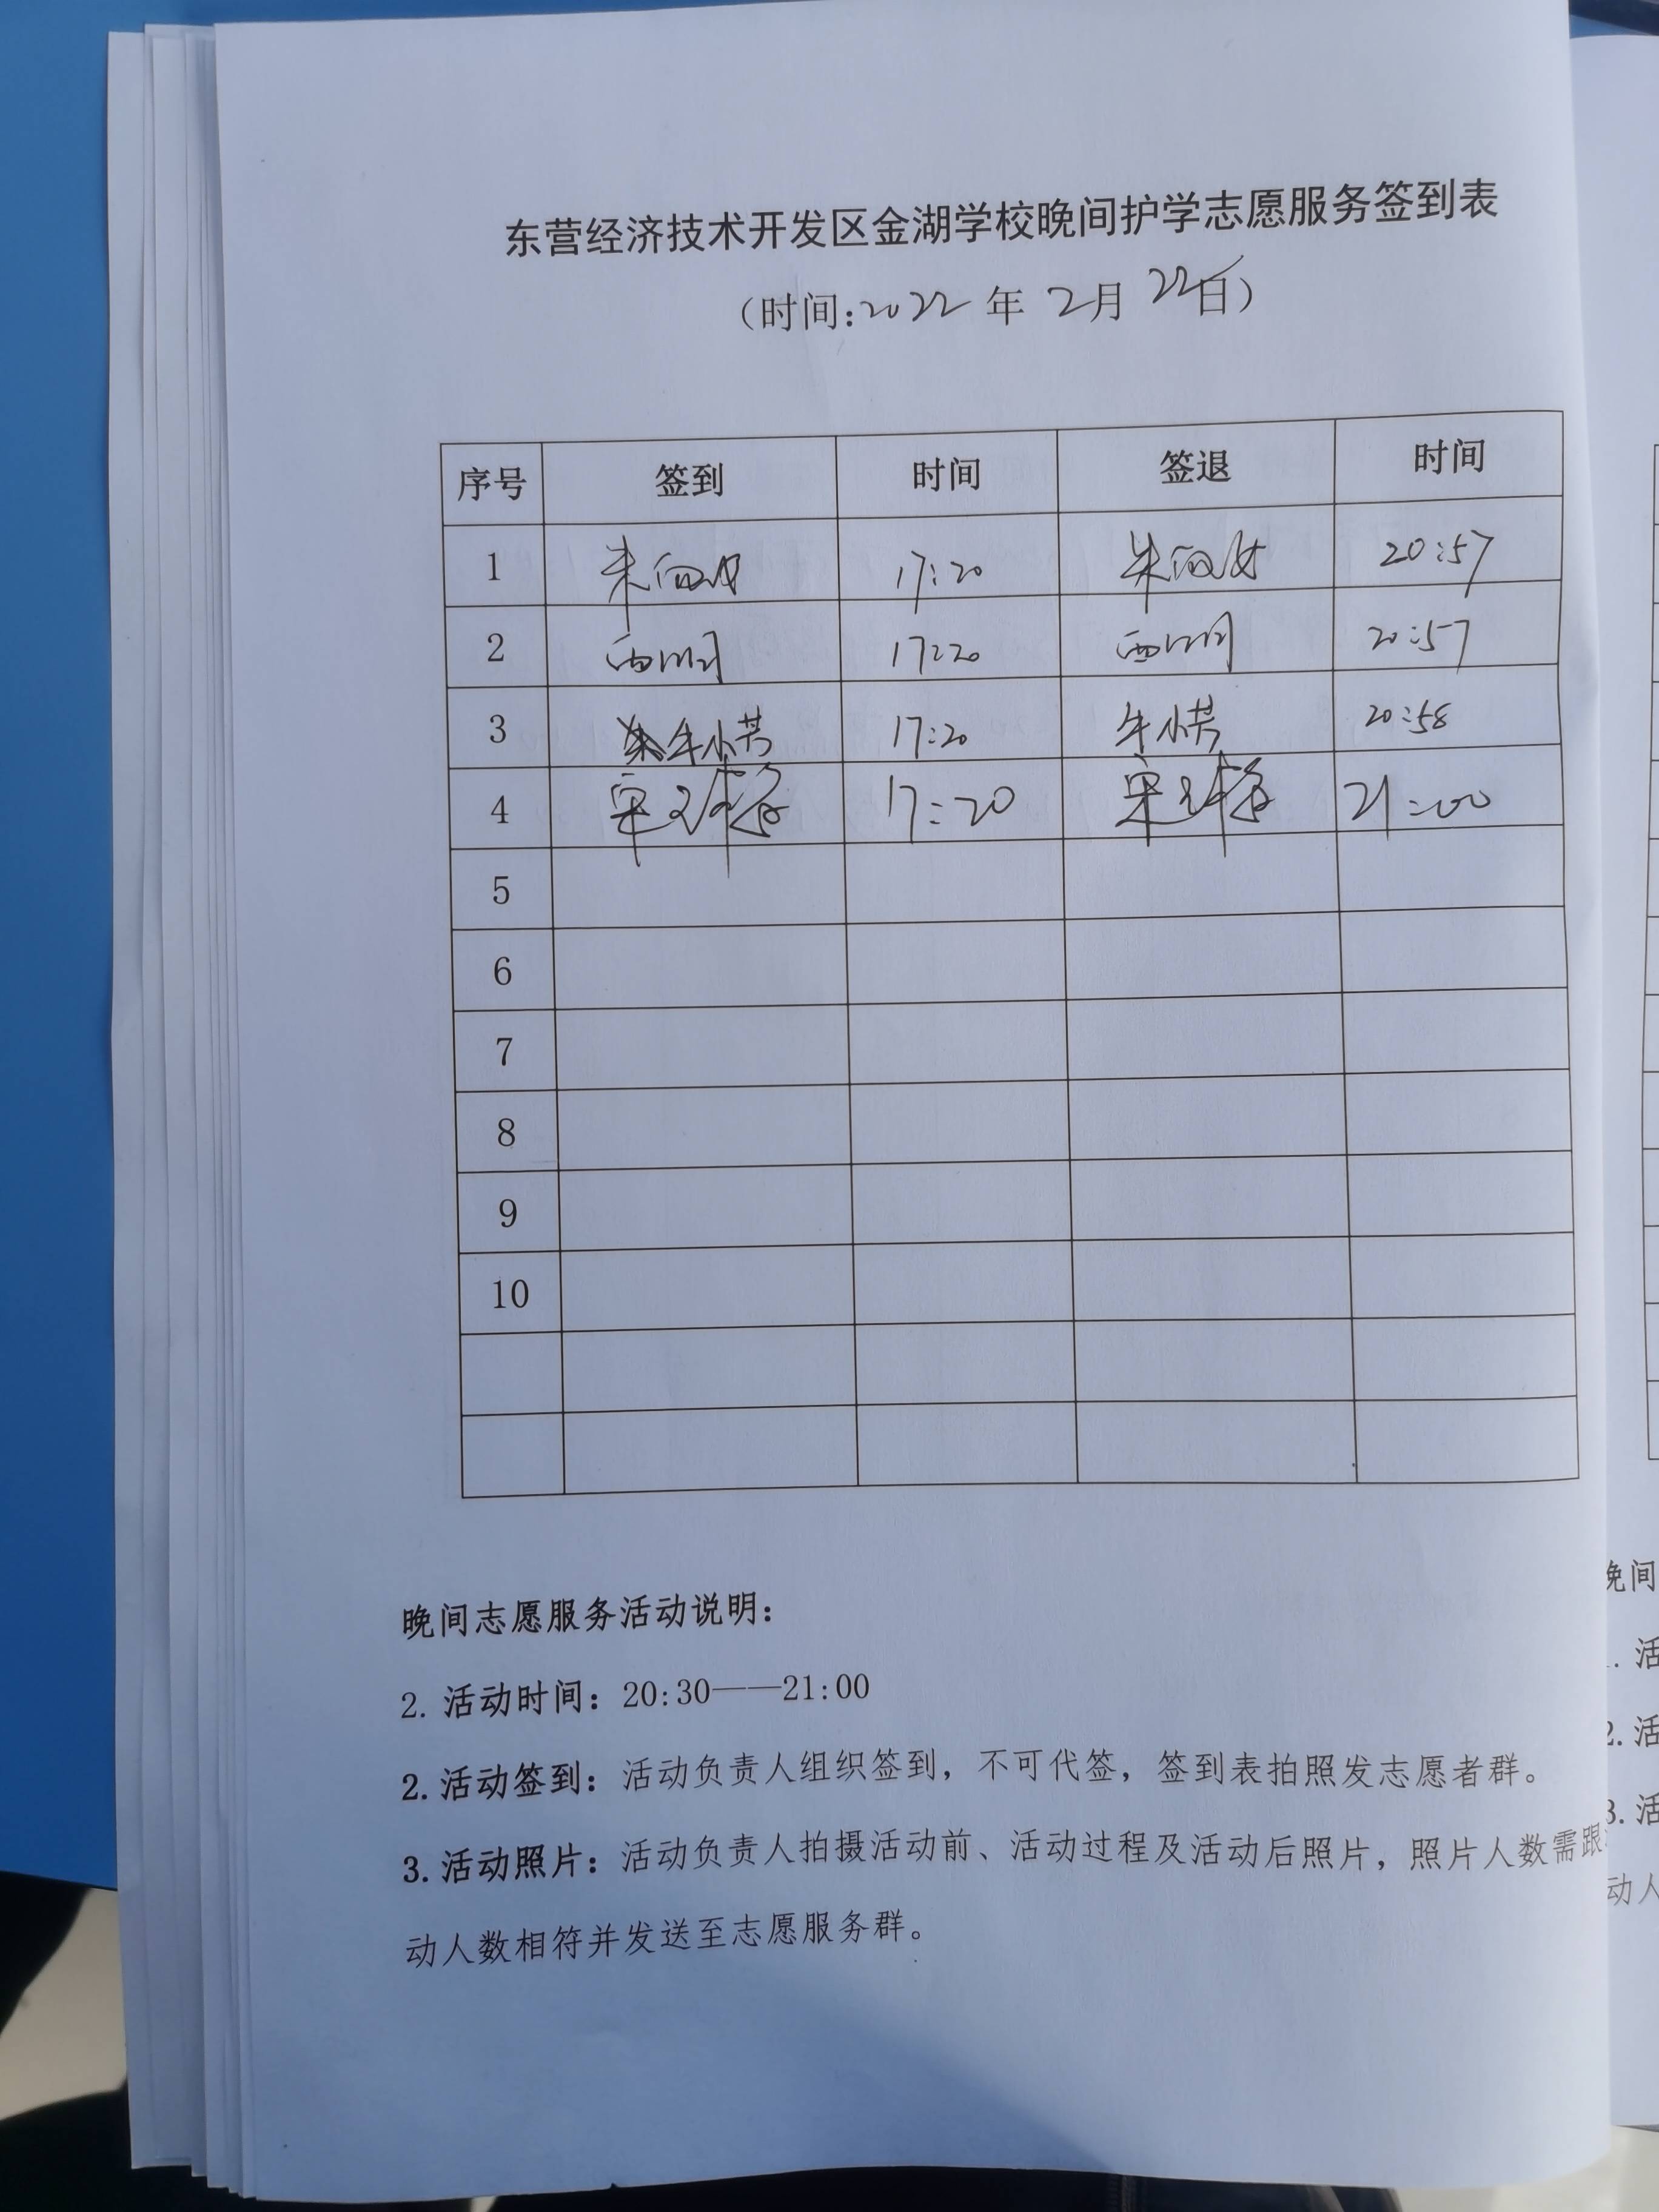 东营经济技术开发区金湖学校晚间护学志愿服务签到表
（时间:2022年 2月 22日）
序号 签到 时间 签退 时间
1 17:20 20:57
2 17:20 20:57
3 牛小芳 17:20 牛小芳 20:58
4 17:20 21:00
5
6
7
8
9
10
晚间志愿服务活动说明：
2. 活动时间：20:30——21:00
2. 活动签到：活动负责人组织签到，不可代签，签到表拍照发志愿者群。
3. 活动照片：活动负责人拍摄活动前、活动过程及活动后照片，照片人数需跟
动人数相符并发送至志愿服务群。
晚间
. 活
2. 活
3. 活
动人